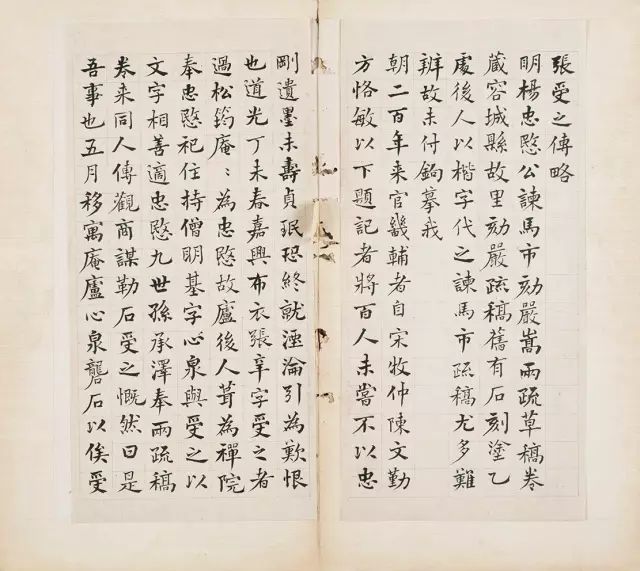 張受之傳略
明楊忠愍公諫馬市劾嚴嵩兩疏草稿卷
藏容城縣故里劾嚴疏稿舊有石刻塗乙
處後人以楷字代之諫馬市疏稿尤多難
辨故未付鉤摹我
朝二百年来官畿輔者自宋牧仲陳文勤
方恪敏以下題記者將百人未嘗不以忠
剛遺墨未壽貞珉恐終就湮淪引為歎恨
也道光丁未春嘉興布衣張辛字受之者
過松筠庵︰為忠愍故廬後人葺為禪院
奉忠愍祀住持僧明基字心泉與受之以
文字相善適忠愍九世孫承澤奉兩疏稿
卷来同人傳觀商謀勒石受之慨然曰是
吾事也五月移寓庵廬心泉礱石以俟受